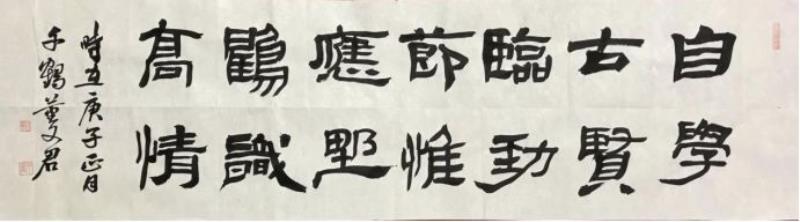 自學
古賢
臨勁
節惟
應野
鶴識
高情
時在庚子正月
千鶴文君